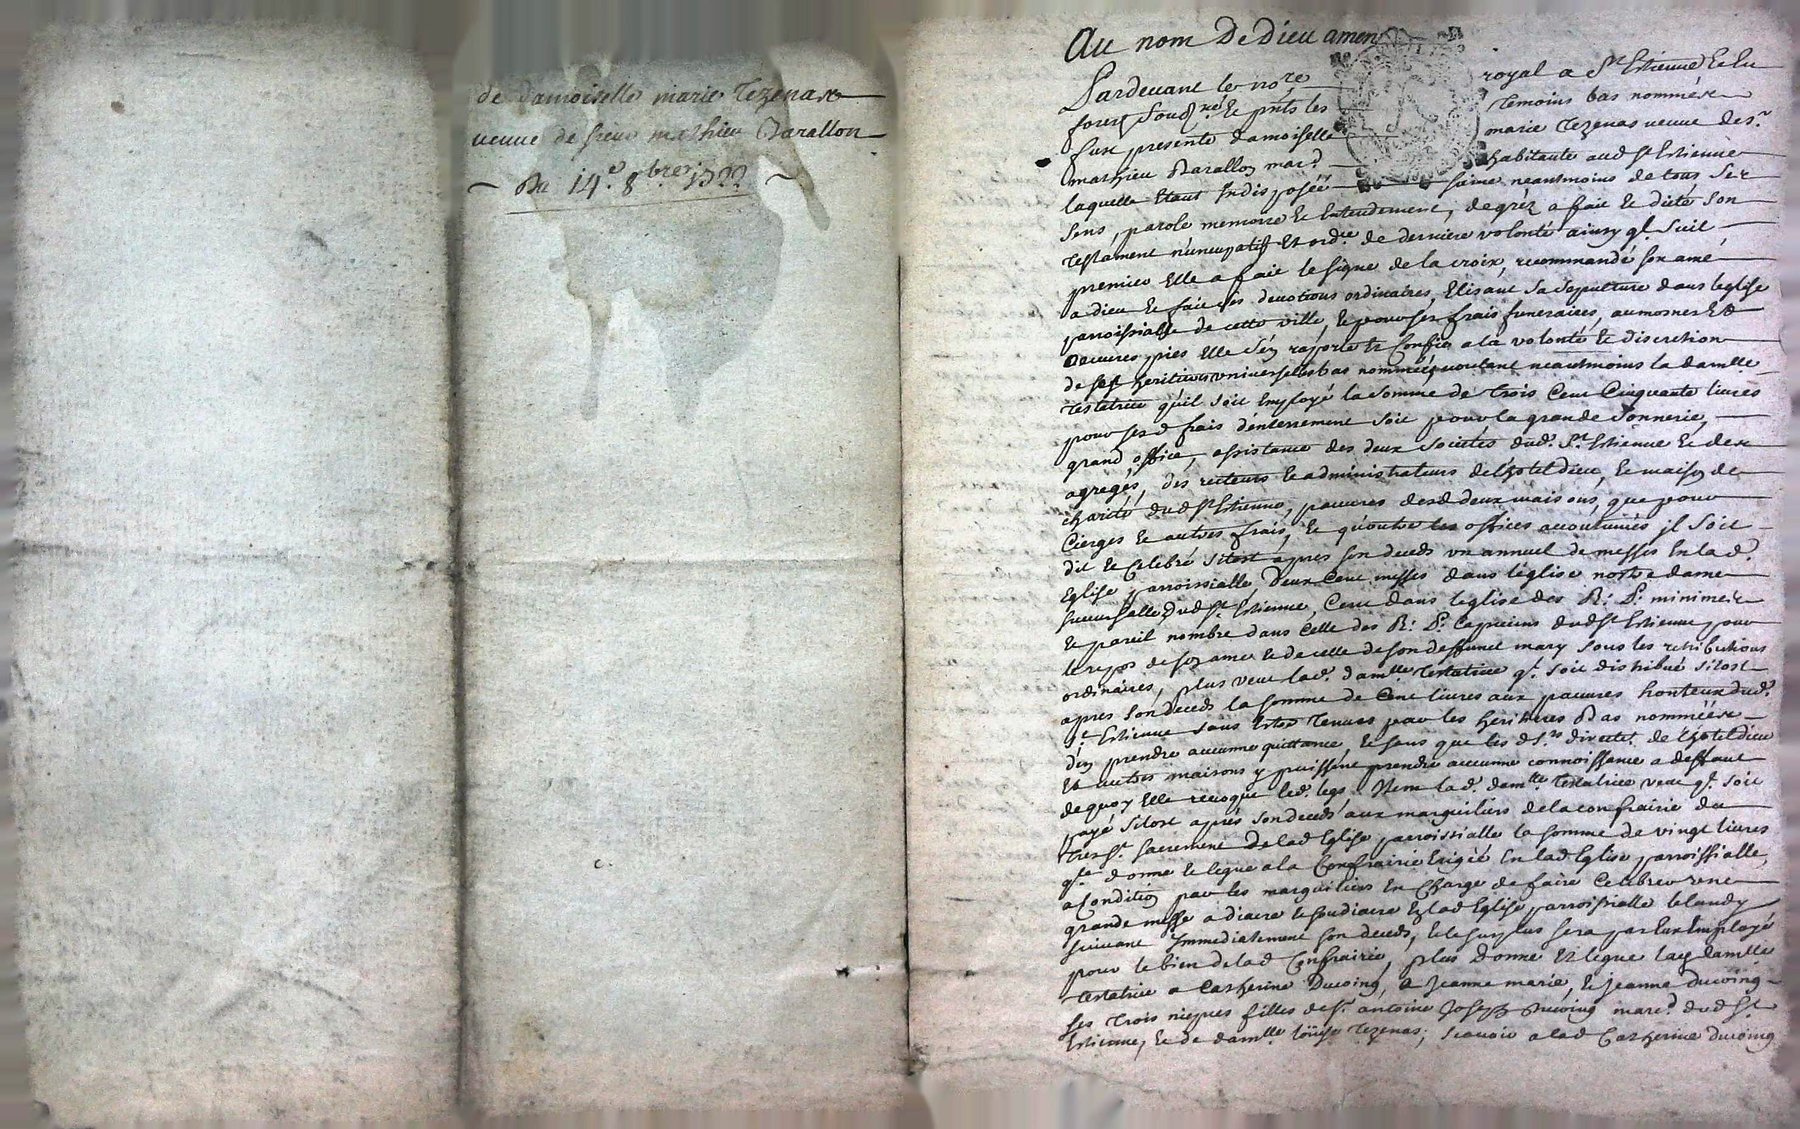 de damoiselle marie Tezenas
veuve de sieur mathieu Barallon
Du 14e. 8bre 1722
Au nom De Dieu amen
Pardevant le no.re royal a St Estienne En
forest sousg.né Et pnts les temoins bas nommés
fust presente damoiselle marie tezenas veuve de s.r
mathieu Barallon mard. habitante aud St Estienne
laquelle Etant Indisposée saine neantmoins de tous ses
sens, parole memoire Et Entendement, de grez a fait Et dicté son
testament nuncupatif Et ord.re de derniere volonté ainsy q.l suit
premier Elle a fait le signe de la croix, recommandé son ame
a dieu Et fait ses devotions ordinaires, Elisant sa sepulture dans leglise
parroissialle de cette ville, Et pour ses frais funeraires, aumosnes Et
oeuvres pies Elle s'en raporte Et Confie a la volonté Et discretion
de ses heritieres universelles bas nommées, voulant neantmoins la damlle
testatrice quil soit Employé la somme de trois Cent Cinquante livres
pour sesd frais denterrement soit pour la grande sonnerie,
grand office, assistance des deux societés dud. St Estienne Et des
agregés, des recteurs Et administrateurs de lhotel dieu, Et maison de
charité dud St Estienne, pauvres desd deux maisons, que pour
Cierges Et autres frais, Et qu'outre les offices accoutumés jl soit
dit Et Celebré sitost apres son deceds un annuel de messes En lad.
Eglise parroissialle Deux Cent messes dans leglise nostre dame
succursalle dud St Estienne, Cent dans leglise des R: P: minimes
Et pareil nombre dans Celle des R: P: Capucins dud St Estienne pour
le repos de son ame Et de celle de son deffunct mary sous les retributions
ordinaires, plus veut lad. damlle testatrice q.l soit distribué sitost
apres son deceds la somme de Cent livres aux pauvres honteux dud.
St Estienne sans Estre tenues par les heritieres Bas nommées
d'en prendre aucunne quittance, Et sans que les d. s.rs direct.rs de lhotel dieu
Et autres maisons y puissent prendre aucunne connoissance a deffaut
de quoy Elle revoque led. legs. Item lad. damlle testatrice veut q.l soit
payé sitost après son deceds aux marguiliers de la confrairie du
tres St. sacrement de lad Eglise parroissialle la somme de vingt livres
q.le donne Et legue a la Confrairie Erigée En lad Eglise parroissialle,
a Condition par les marguiliers En Charge de faire Celebrer une
grande messe a diacre Et soudiacre En lad Eglise parroissialle le lundy
suivant Immediatement son deceds, Et le surplus sera par Eux Employé
pour le bien de lad Confrairie, plus Donne Et legue lad damlle
testatrice a Catherine Ducoing, a Jeanne marie, Et jeanne ducoing
ses trois niepces filles de s.r antoine Joseph Ducoing marc.d dud St
Estienne, Et de damlle loüise tezenas; scavoir a lad Catherine ducoing